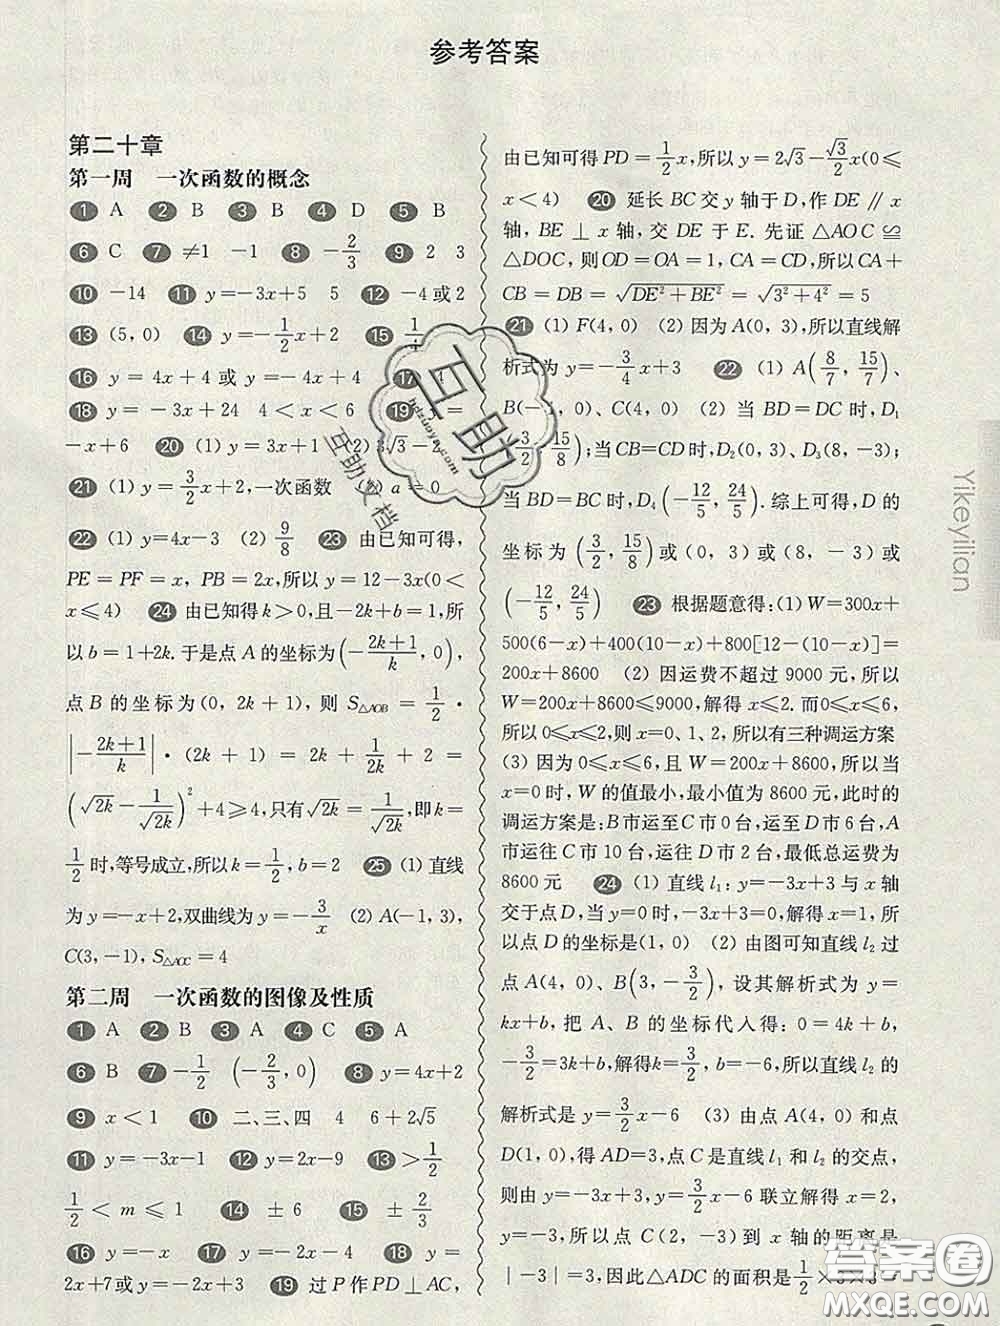 参考答案
第二十章
第一周 一次函数的概念
1 A 2 B 3 B 4 D 5 B
6 C 7 ≠1 -1 8 -2/3 9 2 3
10 -14 11 y=-3x+5 5 12 -4或2
13 (5,0) 14 y=-1/2x+2 15
16 y=4x+4或y=-4x-4 17
18 y=-3x+24 4<x<6 19 y=
-x+6 20 (1) y=3x+1 (2)
21 (1) y=3/2x+2,一次函数 (2) a=0
22 (1) y=4x-3 (2) 9/8 23 由已知可得,
PE=PF=x, PB=2x,所以 y=12-3x(0<
x≤4) 24 由已知得k>0,且-2k+b=1,所
以b=1+2k.于是点A的坐标为(-(2k+1)/k, 0),
点B的坐标为(0, 2k+1),则 S△AOB=1/2·
|-(2k+1)/k|·(2k+1)=2k+1/2k+2=
(√2k-1/√2k)²+4≥4,只有√2k=1/√2k,即k=
1/2时,等号成立,所以k=1/2,b=2 25 (1) 直线
为y=-x+2,双曲线为y=-3/x (2) A(-1,3),
C(3,-1), S△AOC=4
第二周 一次函数的图像及性质
1 A 2 B 3 A 4 C 5 A
6 B 7 -1/2 (-2/3, 0) 8 y=4x+2
9 x<1 10 二、三、四 4 6+2√5
11 y=-3x-1 12 y=2x-9 13 >1/2
1/2<m≤1 14 ±6 15 ±2/3
16 y=-x 17 y=-2x-4 18 y=
2x+7或y=-2x+3 19 过P作PD⊥AC,
由已知可得PD=1/2x,所以y=2√3-√3/2x(0≤
x<4) 20 延长BC交y轴于D,作DE∥x
轴,BE⊥x轴,交DE于E.先证△AOC≌
△DOC,则OD=OA=1,CA=CD,所以CA+
CB=DB=√DE²+BE²=√3²+4²=5
21 (1) F(4,0) (2) 因为A(0,3),所以直线解
析式为y=-3/4x+3 22 (1) A(8/7, 15/7)、
B(-1,0)、C(4,0) (2) 当BD=DC时,D₁
(3/2, 15/8);当CB=CD时,D₂(0,3)、D₃(8,-3);
当BD=BC时,D₄(-12/5, 24/5).综上可得,D的
坐标为(3/2, 15/8)或(0,3)或(8,-3)或
(-12/5, 24/5) 23 根据题意得:(1) W=300x+
500(6-x)+400(10-x)+800[12-(10-x)]=
200x+8600 (2) 因运费不超过9000元,所以
W=200x+8600≤9000,解得x≤2.而0≤x≤6,
所以0≤x≤2,则x=0、1、2,所以有三种调运方案
(3) 因为0≤x≤6,且W=200x+8600,所以当
x=0时,W的值最小,最小值为8600元,此时的
调运方案是:B市运至C市0台,运至D市6台,A
市运往C市10台,运往D市2台,最低总运费为
8600元 24 (1) 直线l₁:y=-3x+3与x轴
交于点D,当y=0时,-3x+3=0,解得x=1,所
以点D的坐标是(1,0) (2) 由图可知直线l₂过
点A(4,0)、B(3,-3/2),设其解析式为y=
kx+b,把A、B的坐标代入得:0=4k+b,
-3/2=3k+b,解得k=3/2,b=-6,所以直线l₂的
解析式是y=3/2x-6 (3) 由点A(4,0)和点
D(1,0),得AD=3,点C是直线l₁和l₂的交点,
则由y=-3x+3,y=3/2x-6联立解得x=2,
y=-3,所以点C(2,-3)到x轴的距离是
|-3|=3,因此△ADC的面积是1/2×3×3
Yikeyilian
互助
hdzuoye.com
互助文档
答案圈
MXQE.COM